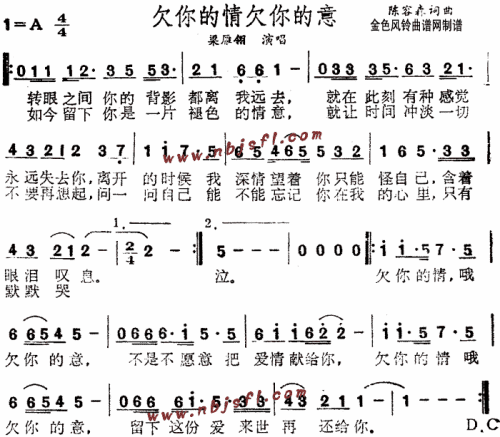 欠你的情欠你的意
1=A 4/4
陈容森 词曲
金色风铃曲谱网制谱
梁雁翎 演唱
0 1 1 1 2· 3 5 5 3· 2 1 6 6 1 - 0 3 3 3 5· 6 3 2 1
转眼之间 你的 背影 都离 我远去, 就在此刻 有种 感觉
如今留下 你是 一片 褪色 的情意, 就让时间 冲淡 一切
www.nbjsfl.com
4 3 2 1 2 3· 7 1 i 7· 5· 6 5 4 6 5 5 3 2 1 6 5· 3 3
永远失去你, 离开 的时候 我 深情望着 你只能 怪自己, 含着
不要再想起, 问一 问自己 能 不能忘记 你在我 的心里, 只有
1. 2.
4 3 2 1 2 - 2/4 2 - 5 - - - 0 0 0 0 i i· 5 7· 5
眼泪 叹 息。 泣。 欠你的情, 哦
默默 哭
6 6 5 4 5 - 0 6 6 6 6· i 5· 5 6 i i 6 2 2 - i i· 5 7· 5
欠你的意, 不是不 愿意 把 爱情献给你, 欠你的情 哦
6 6 5 4 5 -
欠你的意, 留下 这份 爱 来世 再 还给你。 D.C
www.nbjsfl.com